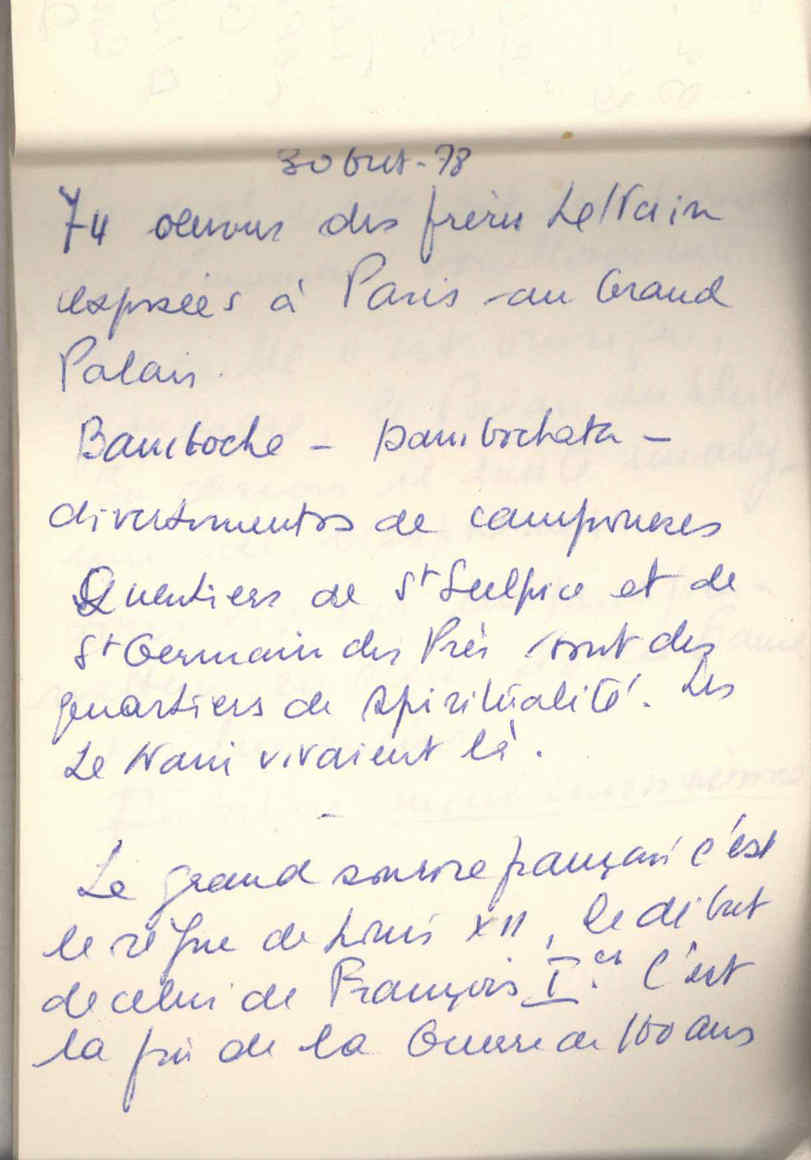 30 out - 78
74 oeuvres des frères Le Nain
exposées à Paris au Grand
Palais.
Bamboche - bambochata -
divertimentos de camponeses
Quartiers de St Sulpice et de
St Germain des Prés sont des
quartiers de spiritualité. Les
Le Nain vivaient là.
-
Le grand sourire français c'est
le règne de Louis XII, le début
de celui de François Ier. C'est
la fin de la Guerre de 100 ans